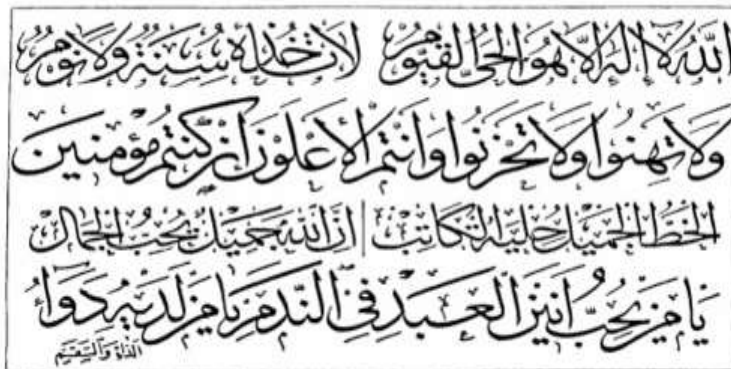 اللهُ لَا إِلَهَ إِلَّا هُوَ الْحَيُّ الْقَيُّومُ لَا تَأْخُذُهُ سِنَةٌ وَلَا نَوْمٌ
وَلَا تَهِنُوا وَلَا تَحْزَنُوا وَأَنْتُمُ الْأَعْلَوْنَ إِنْ كُنْتُمْ مُؤْمِنِينَ
الخَطُّ الجَمِيلُ حِلْيَةُ الكَاتِبِ إِنَّ اللهَ جَمِيلٌ يُحِبُّ الجَمَالَ
يَا مَنْ يُحِبُّ أَنِينَ العَبْدِ فِي النَّدَمِ يَا مَنْ لَدَيْهِ دَوَاءُ
الدَّاءِ وَالسَّقَمِ